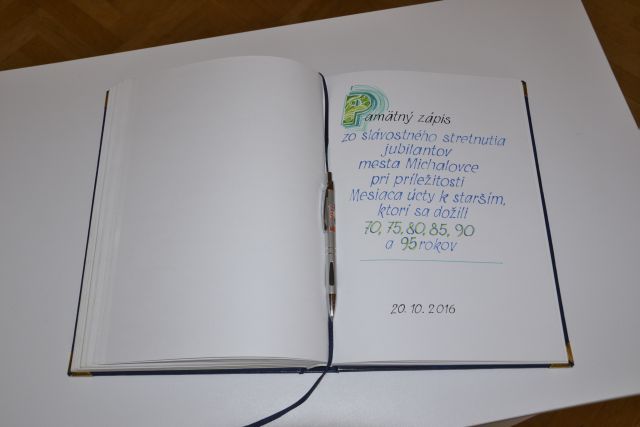 Pamätný zápis
zo slávostného stretnutia
jubilantov
mesta Michalovce
pri príležitosti
Mesiaca úcty k starším,
ktorí sa dožili
70, 75, 80, 85, 90
a 95 rokov
20.10.2016